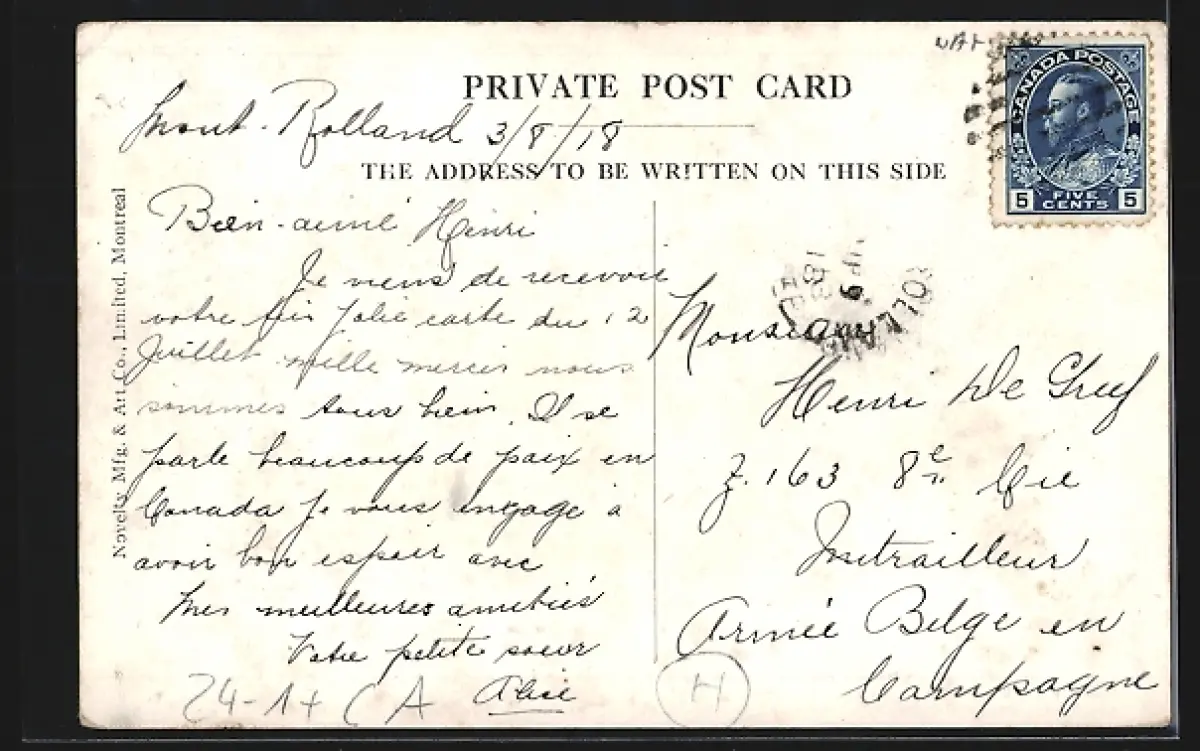 PRIVATE POST CARD
Mont-Rolland 3/8/18
THE ADDRESS TO BE WRITTEN ON THIS SIDE
CANADA POSTAGE
5 FIVE CENTS 5
Novelty Mfg. & Art Co., Limited, Montreal
Bien-aimé Henri
Je viens de recevoir
votre très jolie carte du 12
Juillet mille mercis nous
sommes tous bien. Il se
parle beaucoup de paix en
Canada je vous engage à
avoir bon espoir avec
mes meilleures amitiés
Votre petite soeur
Alice
Monsieur
Henri De Greef
Z. 163 8e Cie
Mitrailleur
Armée Belge en
Campagne
24-1+ CA
H